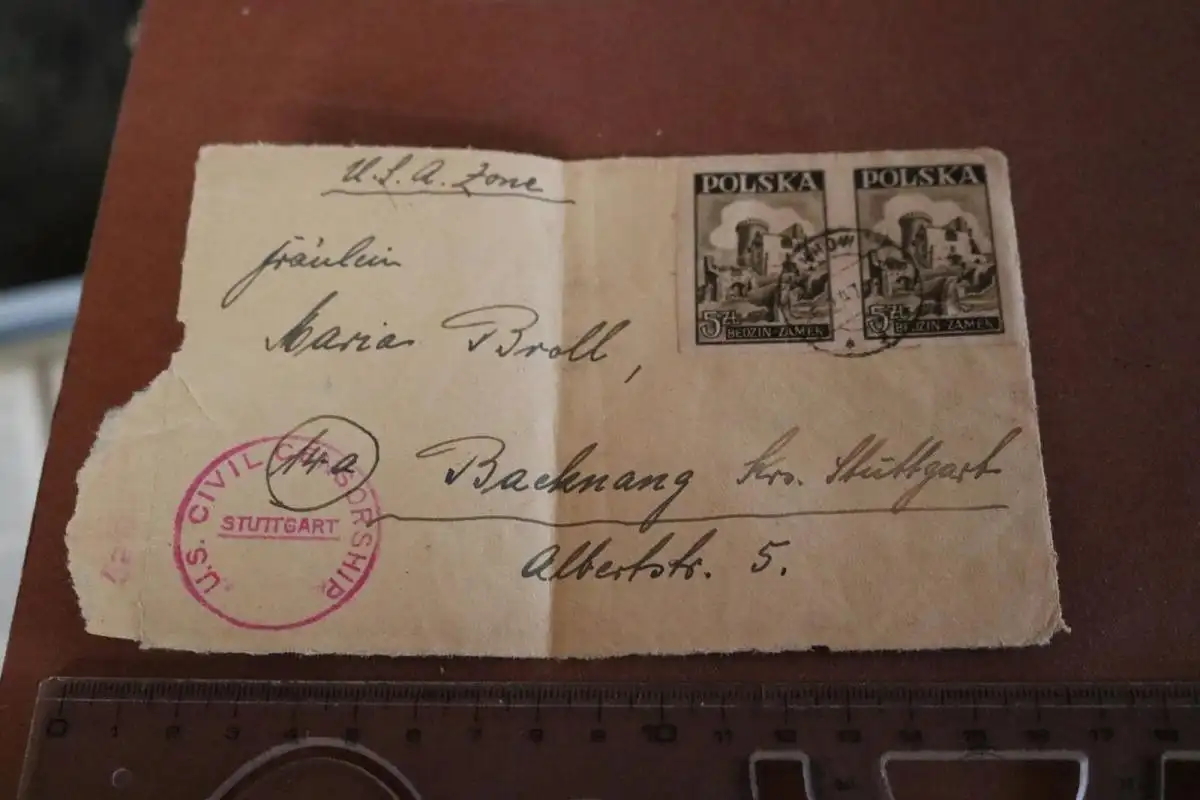 U.S.A. Zone
POLSKA POLSKA
5 ZŁ BĘDZIN-ZAMEK 5 ZŁ BĘDZIN-ZAMEK
Fräulein
Maria Broll,
14a Backnang Krs. Stuttgart
Albertstr. 5.
U.S. CIVIL CENSORSHIP
STUTTGART
0 1 2 3 4 5 6 7 8 9 10 11 12 13 14 15 16 17 18